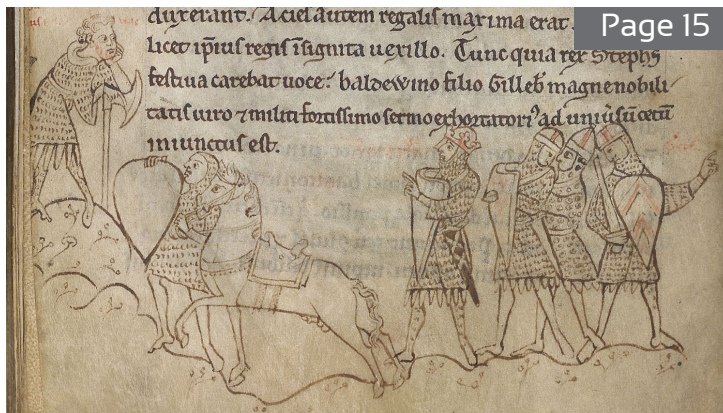 Page 15
duxerant. Acies autem regalis maxima erat
licet ip̄ius regis īsignita uexillo. Tunc quia rex Stephs
festiua carebat uoce? baldewino filio Gilleb̄ magne nobili
tatis uiro ⁊ militi fortissimo sermo exhortatoriꝰ ad
iniunctus est.